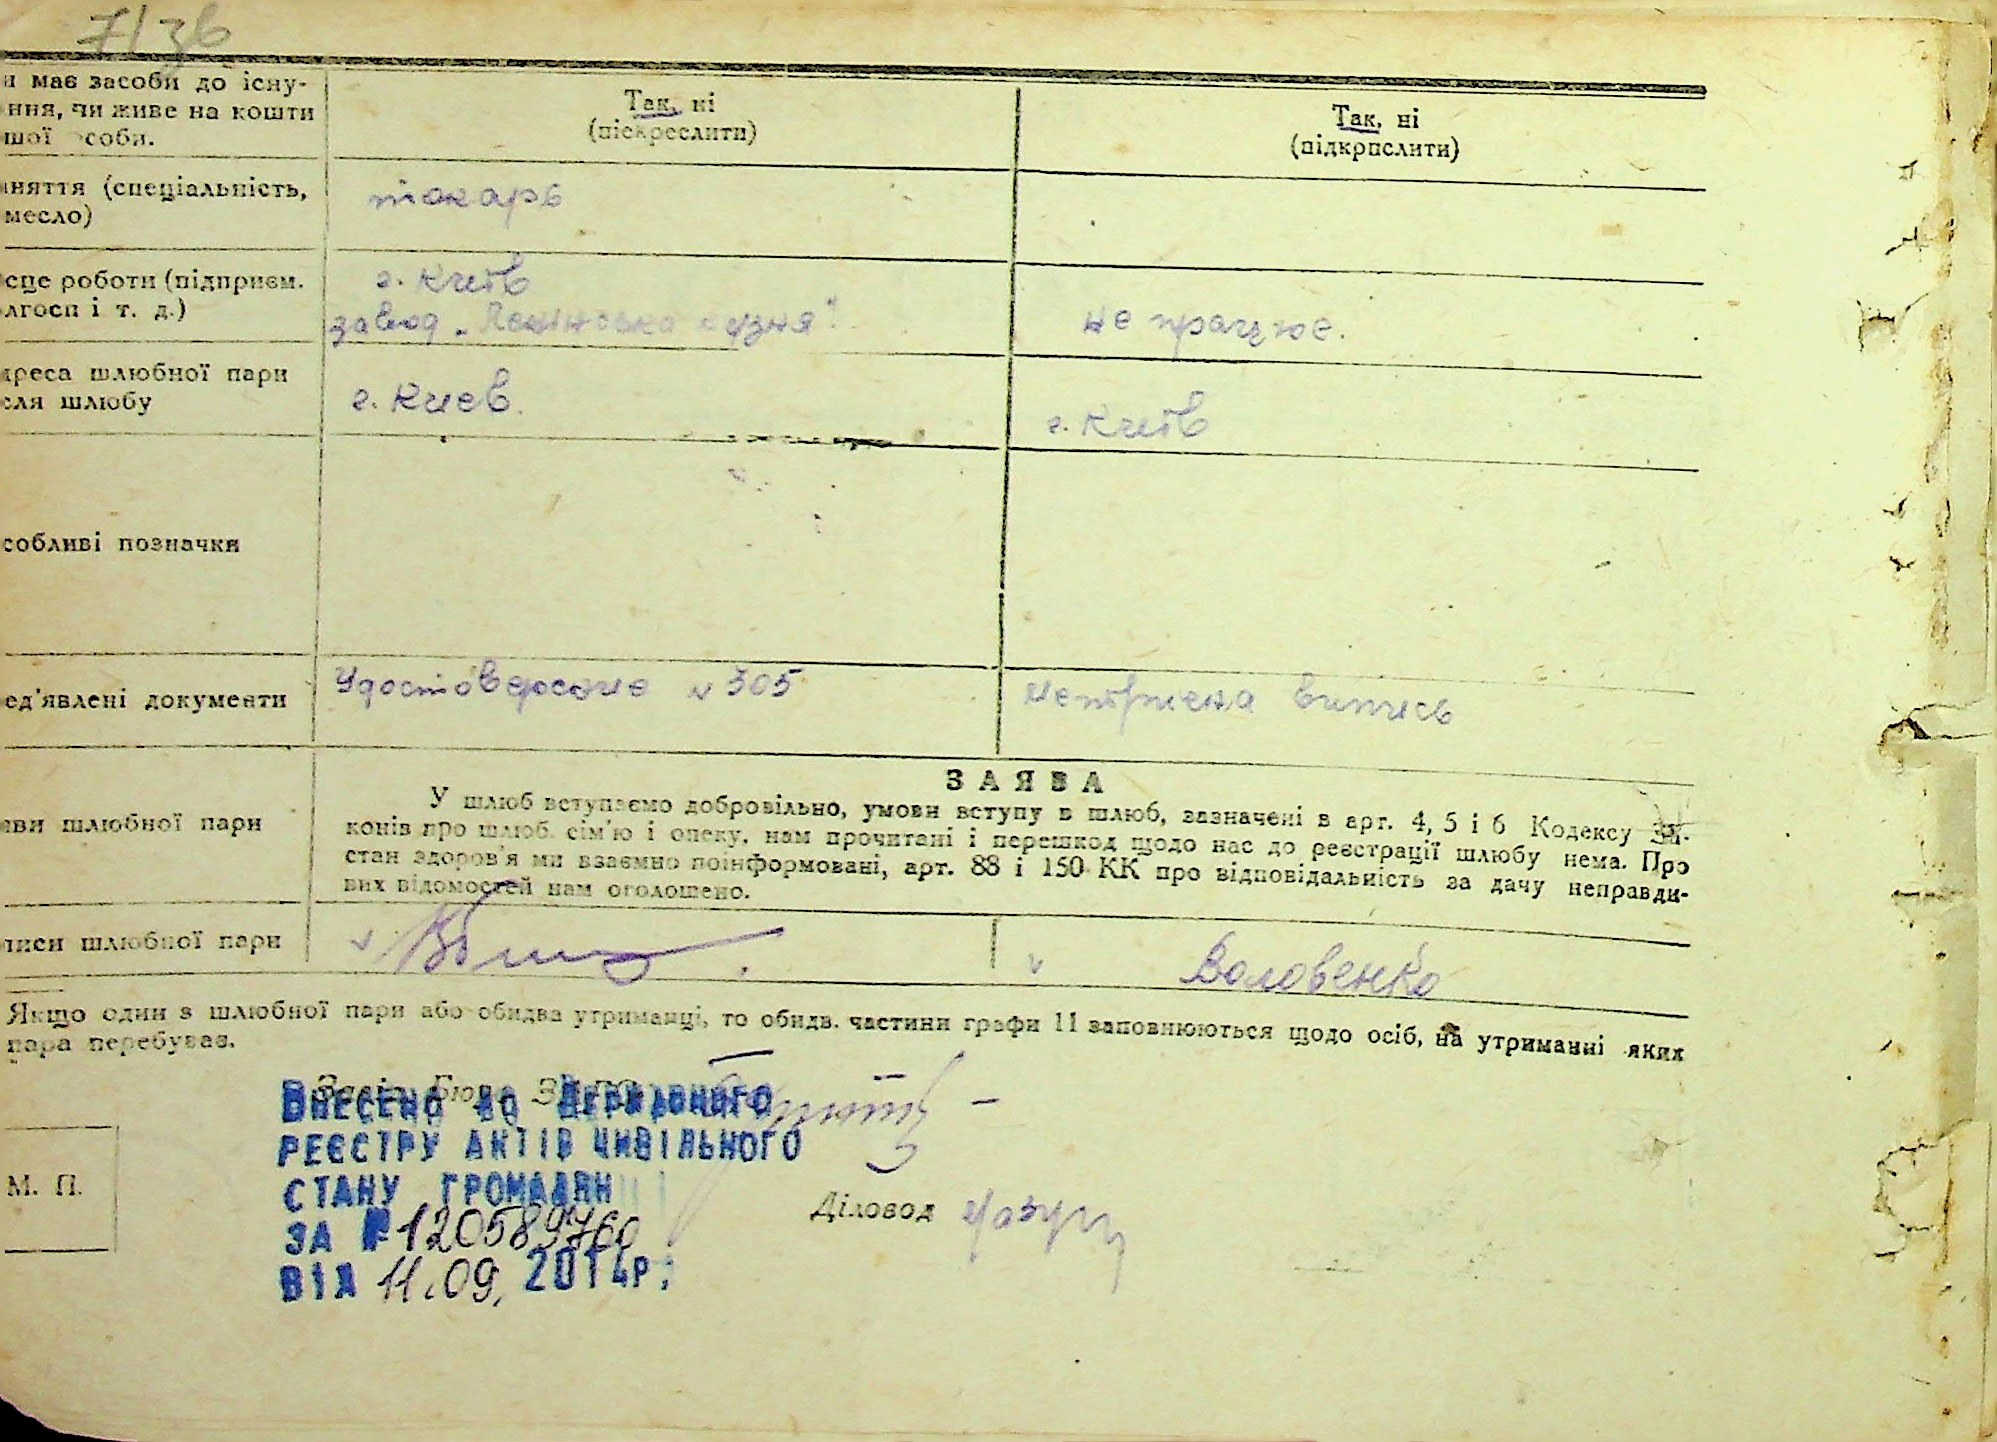 7/зв
и має засоби до існу-
ння, чи живе на кошти
шої особи.
Так, ні
(підкреслити)
Так, ні
(підкрпслити)
няття (спеціальність,
месло)
токарь
сце роботи (підприєм.
лгосп і т. д.)
г. Київ
завод „Ленінська кузня"
не працює.
дреса шлюбної пари
сля шлюбу
г. Киев.
г. Київ
собливі позначки
ед'явлені документи
Удостоверение N 305
метрична витись
ЗАЯВА
У шлюб вступаємо добровільно, умови вступу в шлюб, зазначені в арт. 4, 5 і 6 Кодексу За.
конів про шлюб, сім'ю і опеку, нам прочитані і перешкод щодо нас до реєстрації шлюбу нема. Про
стан здоров'я ми взаємно поінформовані, арт. 88 і 150 КК про відповідальність за дачу неправди-
вих відомостей нам оголошено.
яви шлюбної пари
писи шлюбної пари
v
v Воловенко
Якщо один з шлюбної пари або обидва утриманці, то обидв. частини графи 11 заповнюються щодо осіб, на утриманні яких
пара перебуває.
Внесено до Державного
реєстру актів цивільного
стану громадян
за № 120589760
від 11.09. 2014р.
М. П.
Діловод